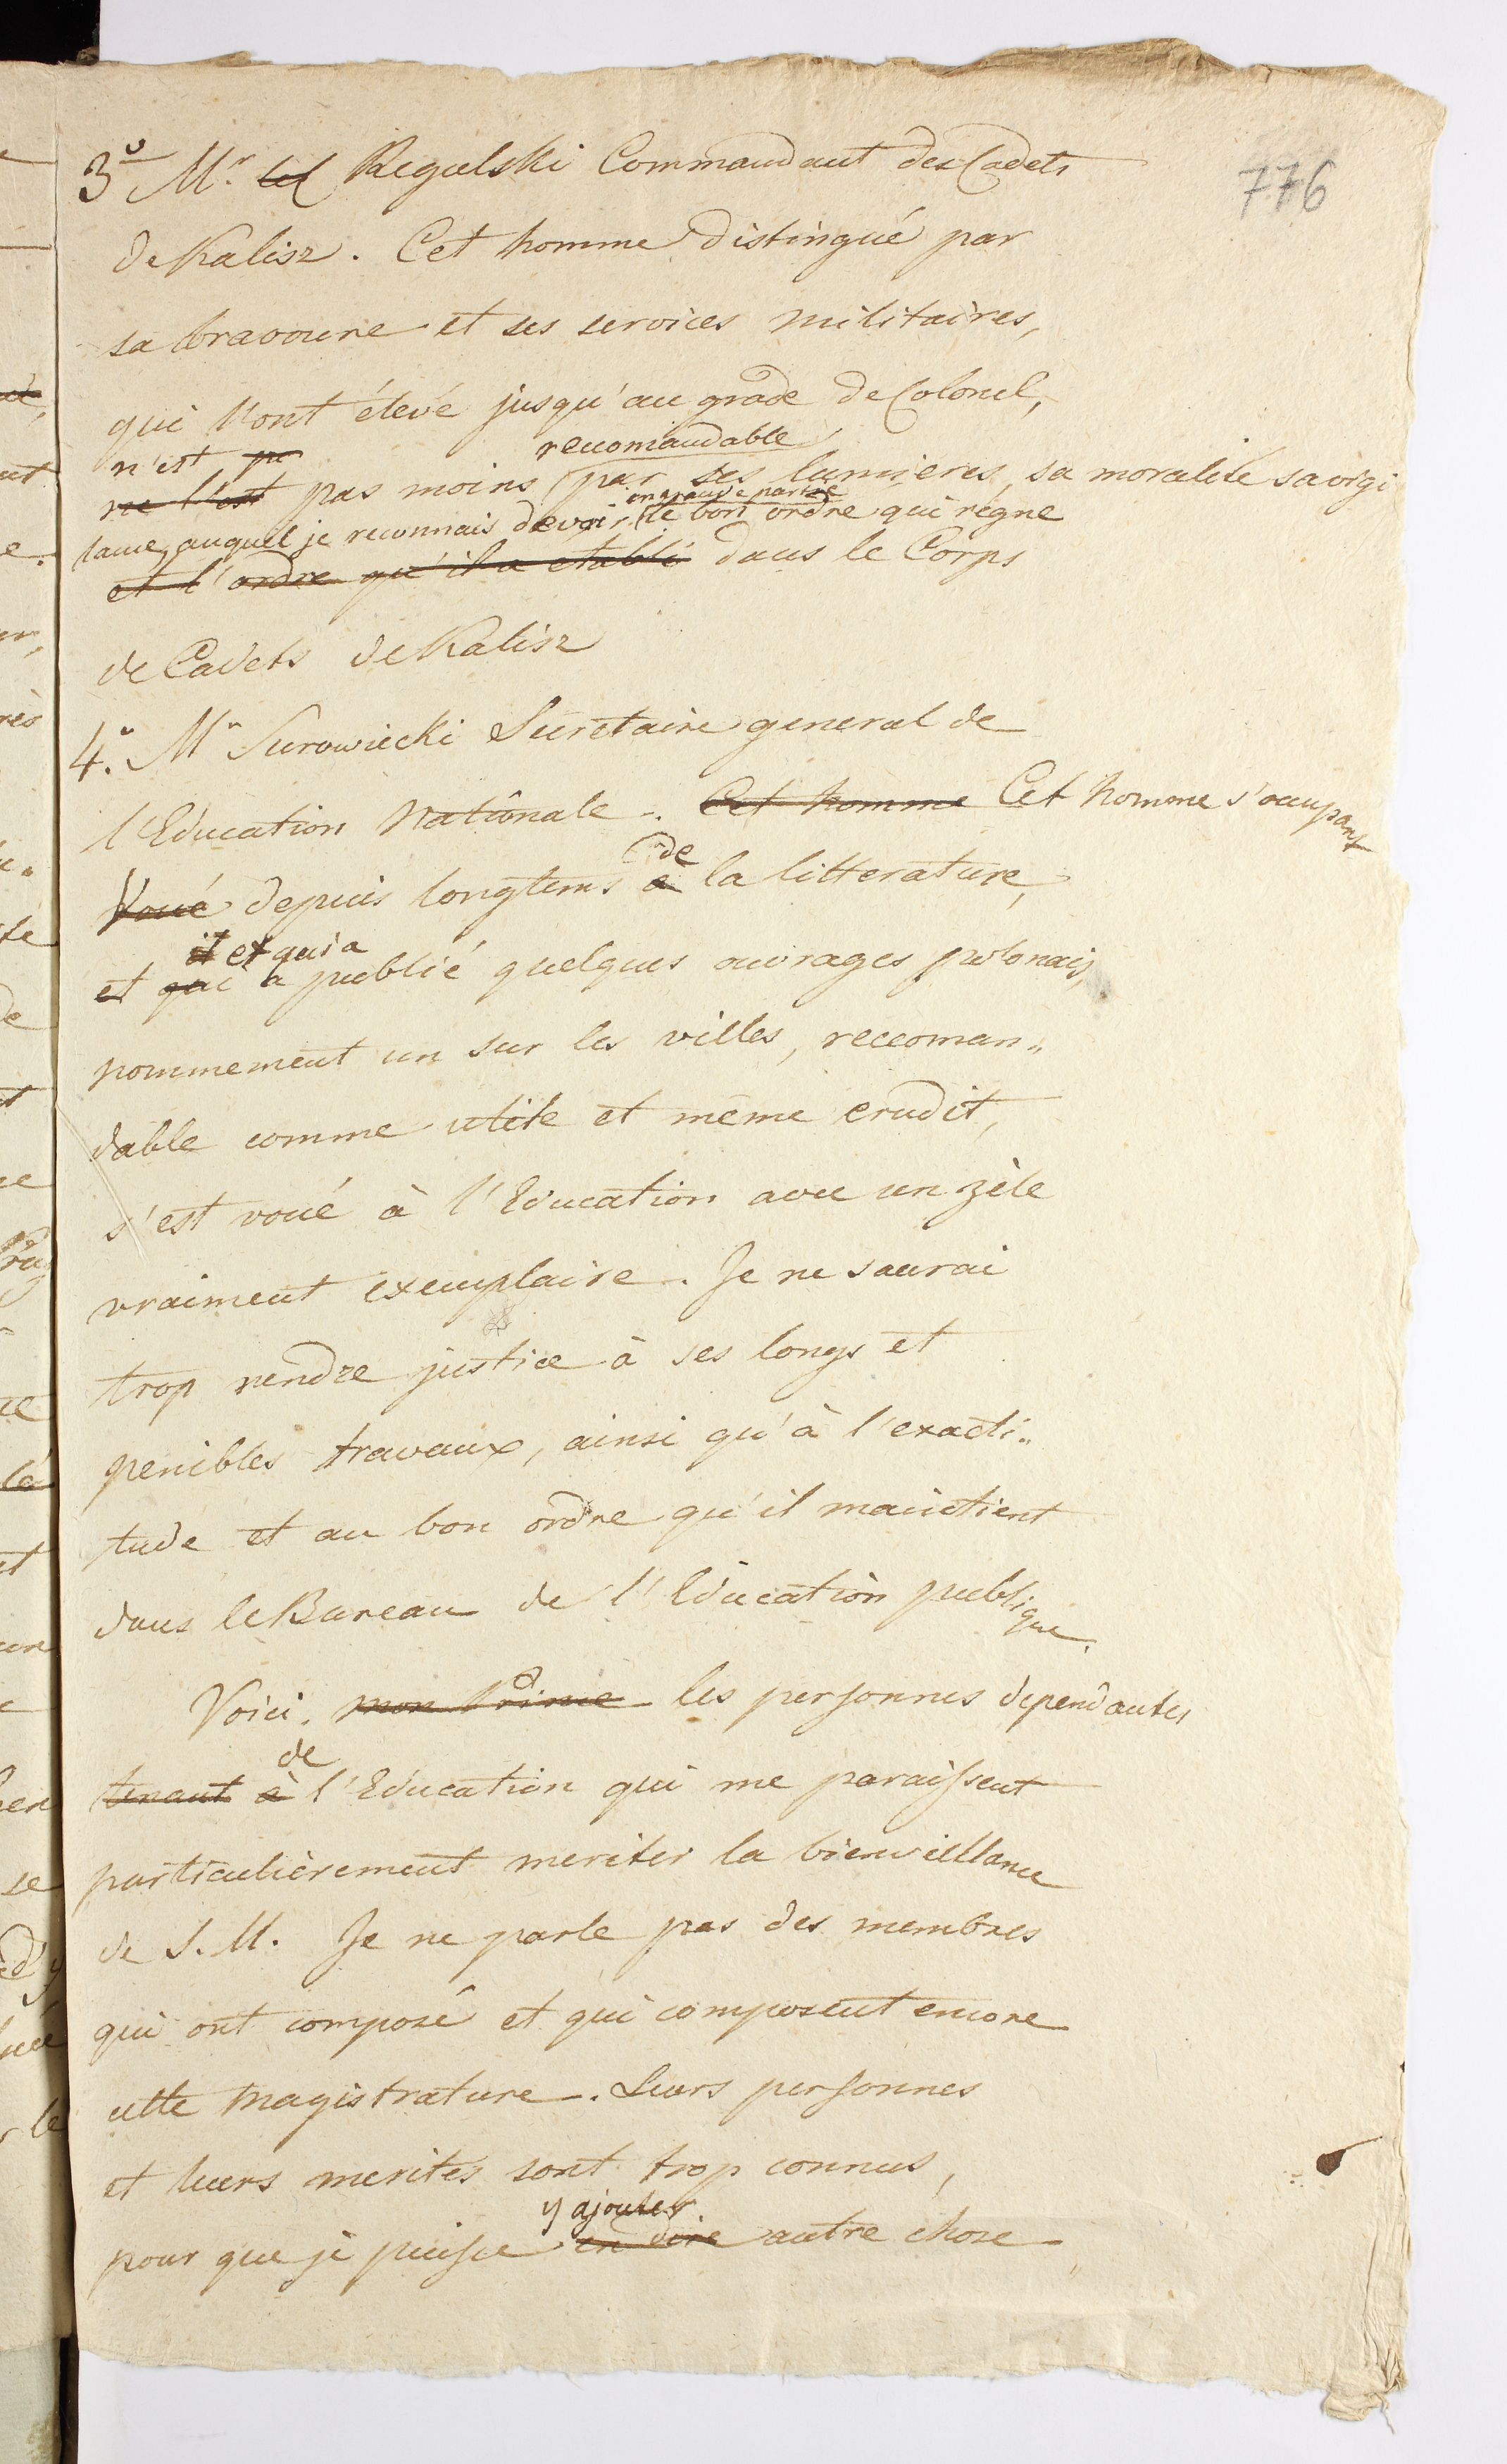 776
3º Mr. Regulski Commandant des Cadets
de Kalisz. Cet homme distingué par
sa bravoure et ses services militaires,
qui l'ont élevé jusqu'au grade de Colonel,
n'est
reccomandable
ne l'est pas moins par ses lumieres, sa moralité sa vigi
en grande partie
lance, auquel je reconnais devoir le bon ordre qui règne
et l'ordre qu'il a etabli dans le Corps
de Cadets de Kalisz
4.º Mr Surowiecki Secretaire general de
l'Education Nationale. Cet homme Cet homme s'occupant
de
Voué depuis longtems à la litterature,
et qui a
et qui a publié quelques ouvrages polonais,
nommement un sur les villes, reccoman„
dable comme utile et même erudit,
s'est voué à l'Education avec un zèle
vraiment exemplaire. Je ne saurai
trop rendre justice à ses longs et
penibles travaux, ainsi qu'à l'exacti„
tude et au bon ordre qu'il maintient
dans le Bureau de l'Education publique.
Voici, mon Prince les personnes dependantes
de
tenant à l'Education qui me paraissent
particulièrement meriter la bienveillance
de S. M. Je ne parle pas des membres
qui ont composé et qui composent encore
cette Magistrature. Leurs personnes
et leurs merites sont trop connus,
y ajouter
pour que je puisse en dire autre chose